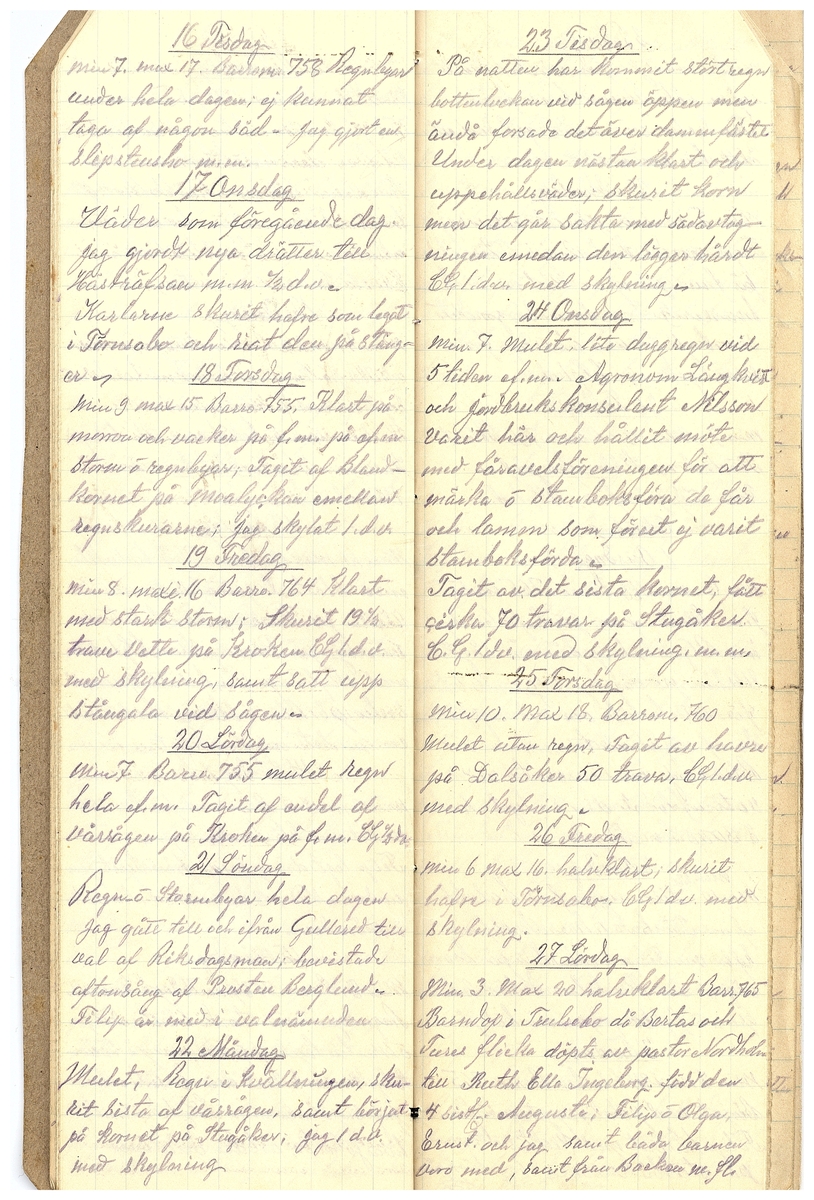 16 Tisdag
min 7. max 17. Barrom. 758 Regnbyar
under hela dagen; ej kunnat
taga af någon säd - jag gjort en
slipstensho m.m.
17 Onsdag
Väder som föregående dag.
jag gjordt nya drätter till
hästräfsan m.m ½ d.v.
Karlarne skurit hafre som legat
i Törnsabo och riat den på stäng-
er
18 Torsdag
Min 9 max 15 Barro. 755. Klart på
morron och vacker på f.m. på ef.m
storm o regnbyar; Tagit af Bland-
kornet på Moalyckan emellan
regnskurarne; jag skylat 1.d.v.
19 Fredag
min 8. maxi. 16 Barro. 764 Klart
med stark storm; Skurit 19½
trave vete på Kroken CG 1.d.v.
med skylning, samt satt upp
stångala vid sågen
20 Lördag
min 7 Barro. 755 mulet regn
hela ef.m. Tagit af endel af
vårrågen på Kroken på f.m. CG ½ dv
21 Söndag
Regn- o Stormbyar hela dagen
jag gått till och ifrån Gullered till
val af Riksdagsman; bevistade
aftonsång af Prosten Berglund
Filip är med i valnämnden
22 Måndag
Mulet, Regn i kvällningen, sku-
rit sista af vårrågen, samt börjat
på kornet på Stugåker; jag 1 d.v.
med skylning
23 Tisdag
På natten har kommit stört regn
bottenluckan vid sågen öppen men
ändå forsade det över dammfästet
Under dagen nästan klart och
uppehållsväder; skurit korn
men det går sakta med sädavtag-
ningen emedan den ligger hårdt
CG 1.d.v. med skylning
24 Onsdag
Min. 7. Mulet. lite duggregn vid
5 tiden ef.m. Agronom Långkvist
och Jordbrukskonsulent Nilsson
varit här och hållit möte
med fåravelsföreningen för att
märka o stamboksföra de får
och lamm som förut ej varit
stamboksförda
Tagit av det sista kornet, fått
cirka 70 travar på Stugåker
C.G. 1 d.v. med skylning. m.m.
25 Torsdag
Min 10. Max 18. Barrom. 760
Mulet utan regn, Tagit av havre
på Dalsåker 50 trava. CG 1.d.v.
med skylning
26 Fredag
min 6 max 16. halvklart; skurit
hafre i Törnsabo. CG 1 d.v. med
skylning.
27 Lördag
Min. 3. Max 20 halvklart Barr. 765
Barndop i Trulsebo då Bertas och
Tures flicka döpts av pastor Nordholm
till Ruth Ella Ingeberg. född den
4 sistl. Augusti; Filip o Olga,
Ernst. och jag samt båda barnen
voro med, samt från Backen m.fl.